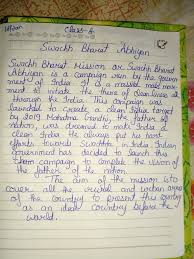 Class-A
Swachh Bharat Abhiyan
Swachh Bharat Mission or Swachh Bharat
Abhiyan is a campaign run by the govern
ment of India. It is a massive mass move-
ment to initiate the theme of cleanliness all
through the India. This campaign was
launched to create a clean India target
by 2019 Mahatma Gandhi, the father of
nation, was dreamed to make India a
clean India. He always put his hard
efforts towards Swachhta in India. Indian
Government has decided to launch this
campaign to complete the vision of
the father of the nation
The aim of the mission is to
cover all the rural and urban areas
of the country to present this country
as an ideal country before the
world.